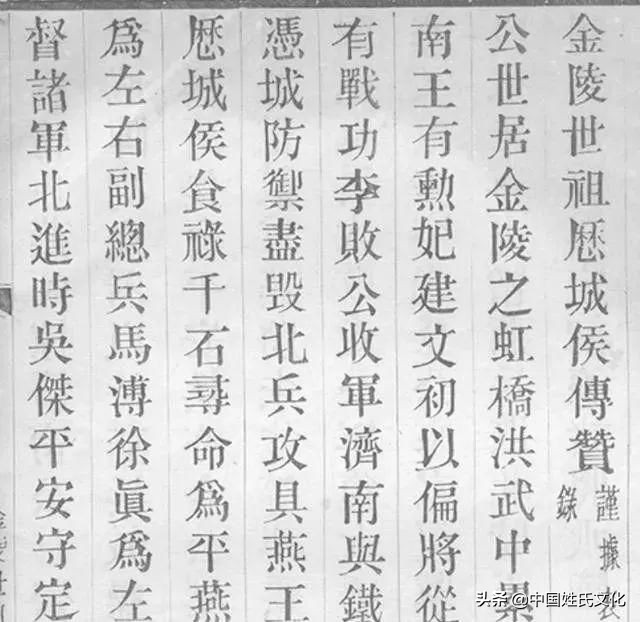 金陵世祖厯城侯傳贊謹據
錄
公世居金陵之虹橋洪武中累
南王有勲妃建文初以偏將從
有戰功李敗公收軍濟南與鐵
憑城防禦盡毁北兵攻具燕王
厯城侯食祿千石尋命爲平燕
爲左右副總兵馬溥徐眞爲左
督諸軍北進時吳傑平安守定
头条 @中国姓氏文化